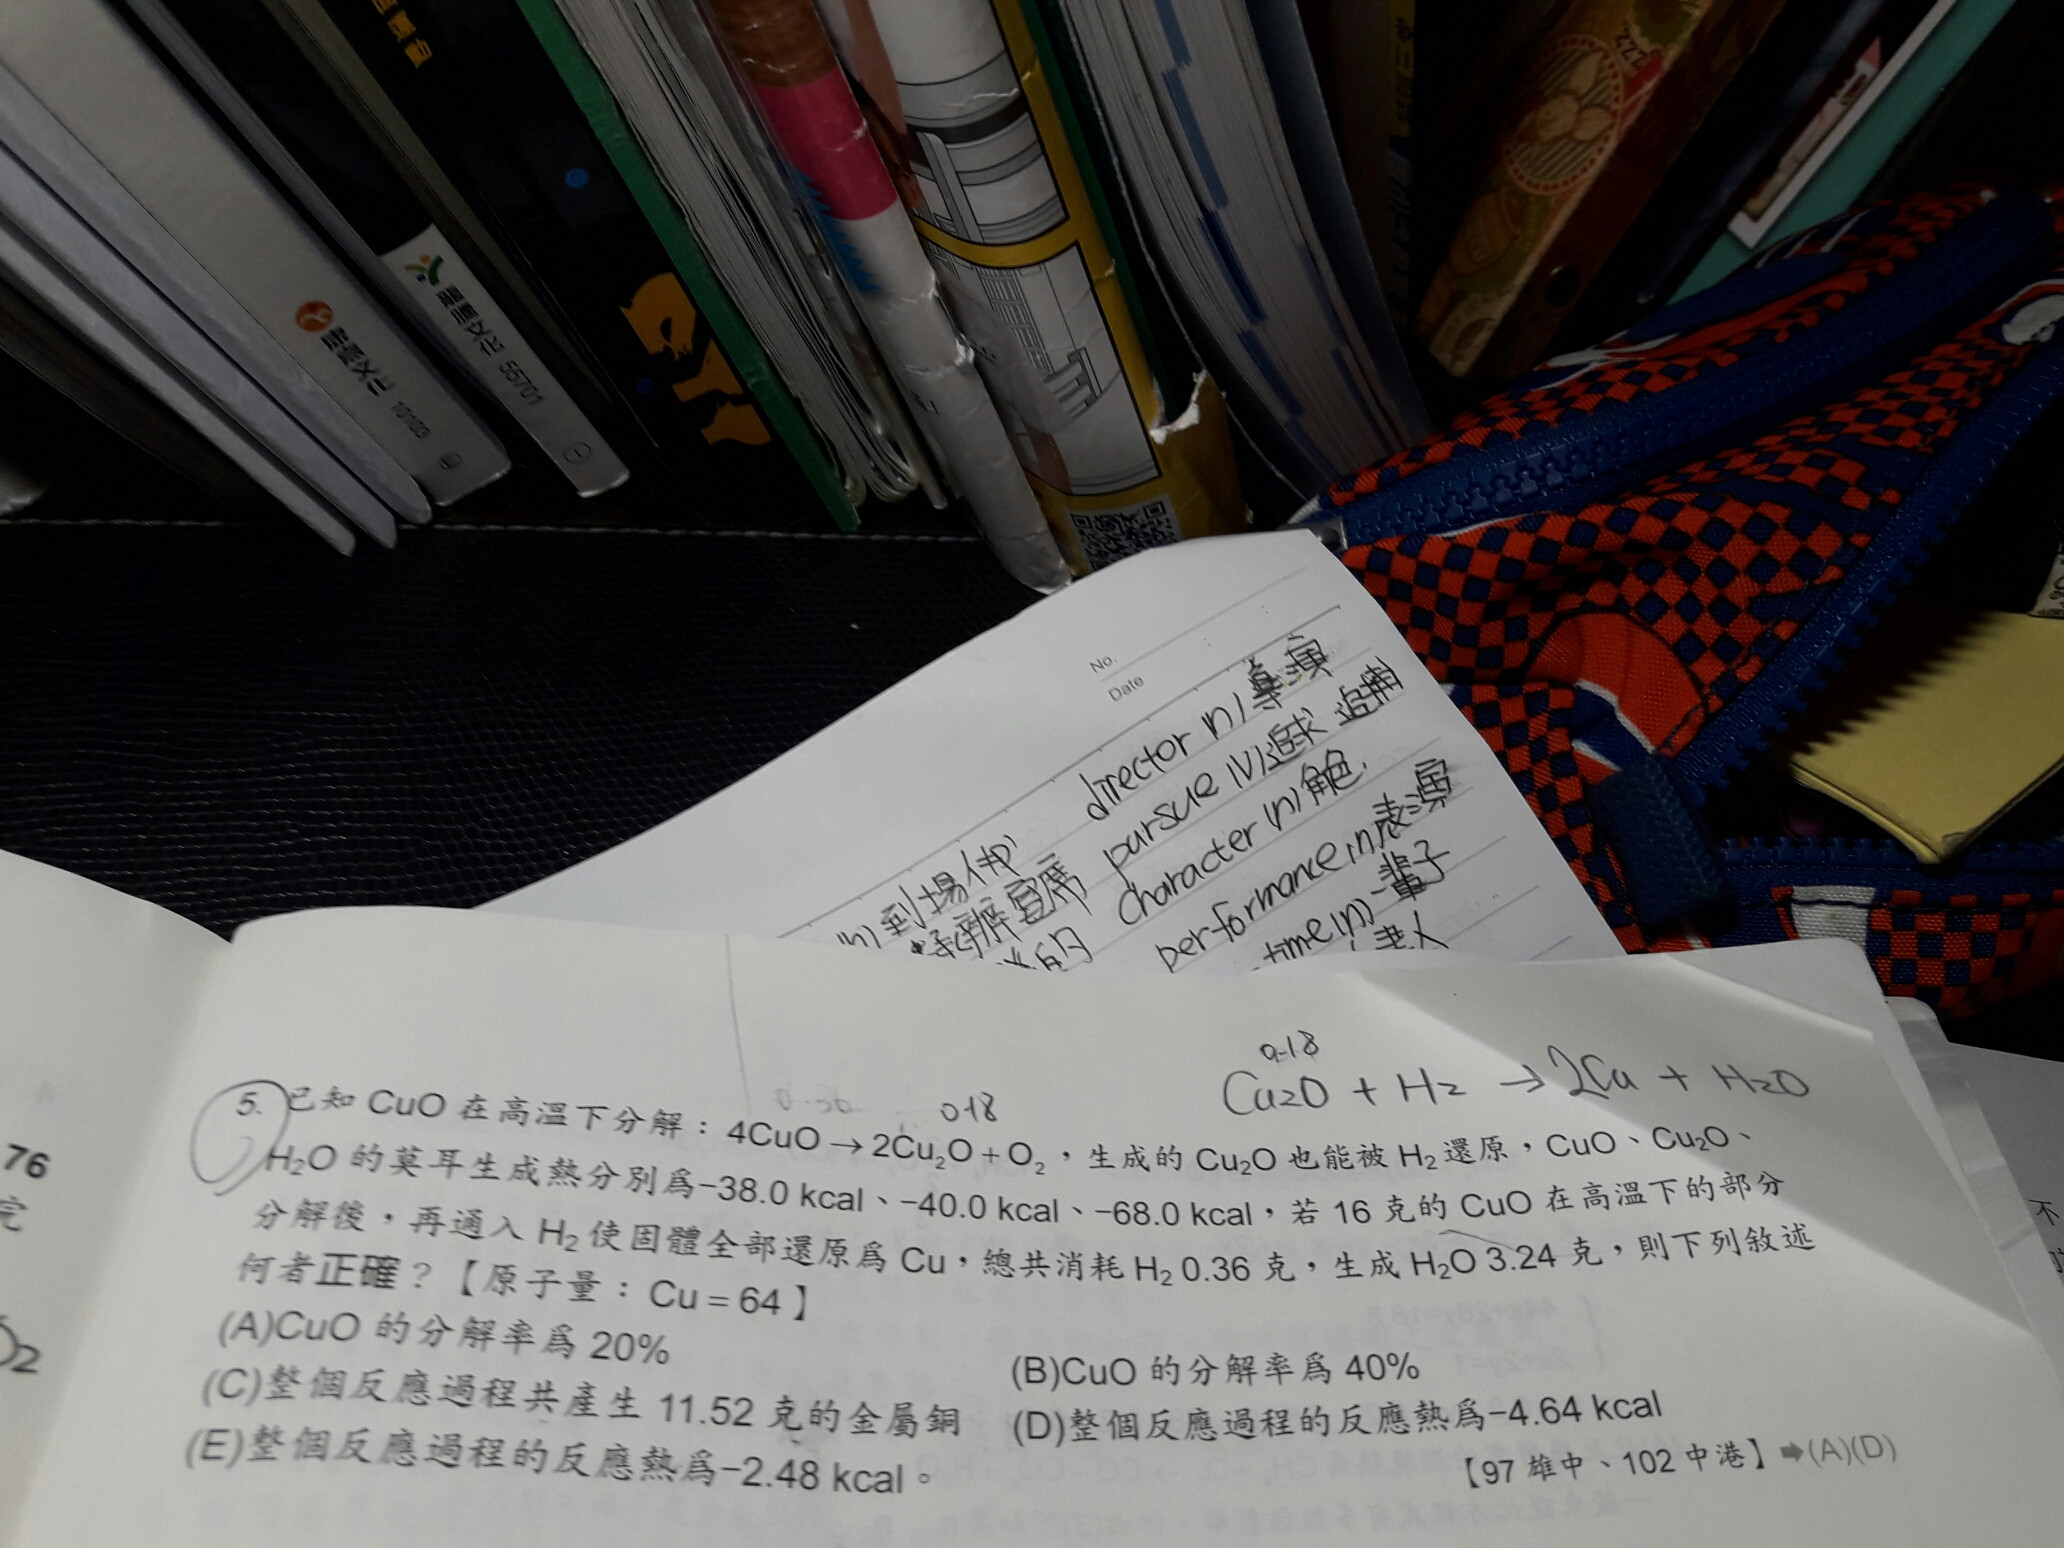 龍騰文化 10103
龍騰文化 55701
No.
Date
director (n) 導演
pursue (v) 追求 追捕
character (n) 角色.
performance (n) 表演
time (n) 一輩子
老人
(n) 到場
宴席
的
76
完
O2
0.18
Cu2O + H2 → 2Cu + H2O
0.36 0.18
5. 已知 CuO 在高溫下分解：4CuO → 2Cu₂O + O₂，生成的 Cu₂O 也能被 H₂ 還原，CuO、Cu₂O、
H₂O 的莫耳生成熱分別爲−38.0 kcal、−40.0 kcal、−68.0 kcal，若 16 克的 CuO 在高溫下的部分
分解後，再通入 H₂ 使固體全部還原爲 Cu，總共消耗 H₂ 0.36 克，生成 H₂O 3.24 克，則下列敘述
何者正確？【原子量：Cu = 64】
(A)CuO 的分解率爲 20%
(B)CuO 的分解率爲 40%
(C)整個反應過程共產生 11.52 克的金屬銅
(D)整個反應過程的反應熱爲−4.64 kcal
(E)整個反應過程的反應熱爲−2.48 kcal。
【97 雄中、102 中港】➡(A)(D)
不